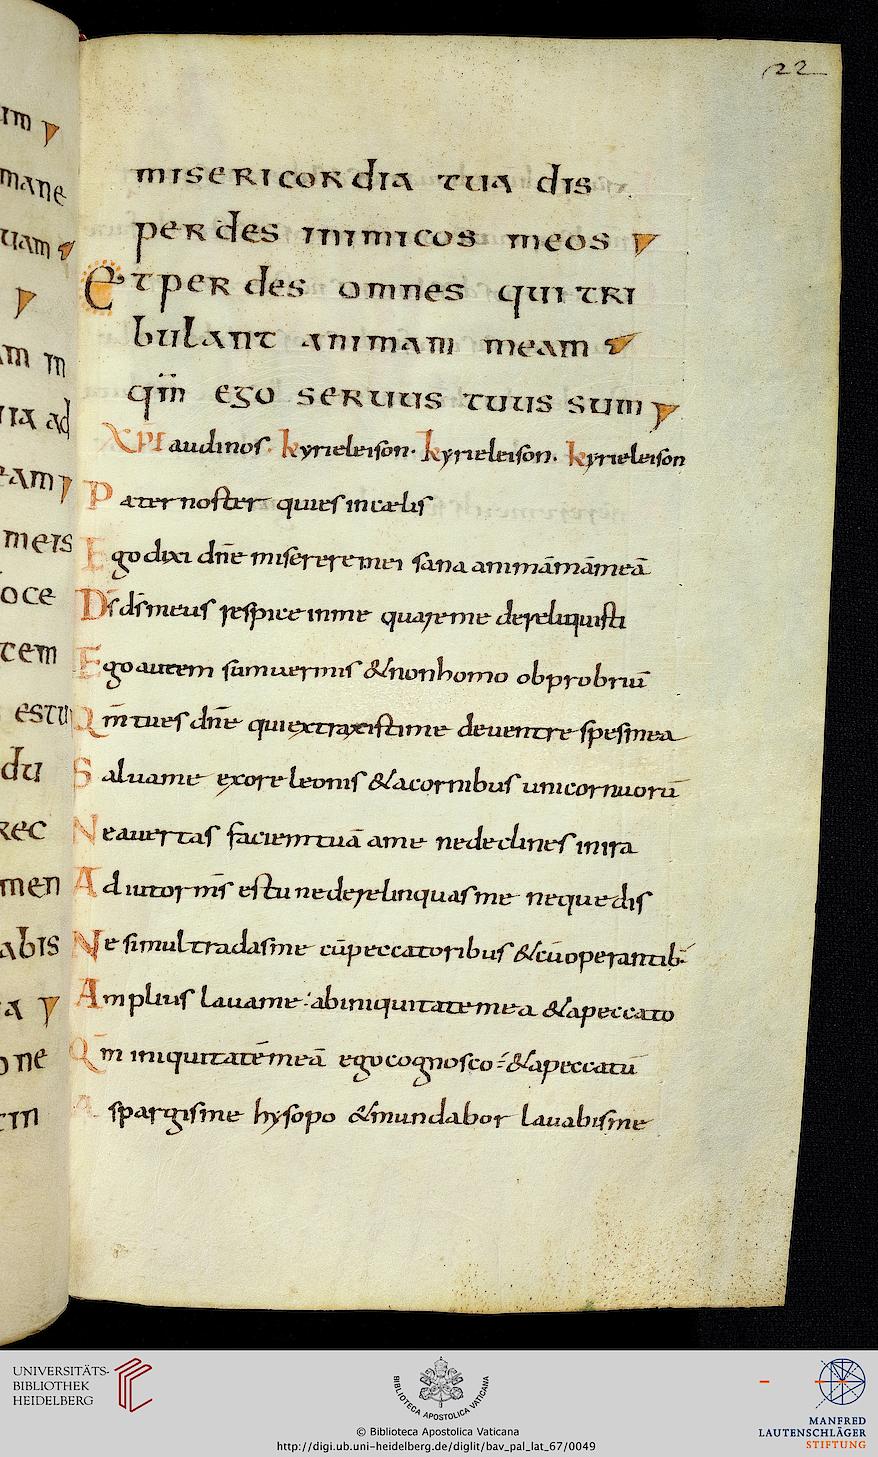 22
misericordia tua dis
perdes inimicos meos
Et perdes omnes qui tri
bulant animam meam
qm̄ ego seruus tuus sum
Xp̄ī audinos. kyrieleison. kyrieleison. kyrieleison
Pater noster qui es in cælis
Ego dixi dn̄e miserere mei sana animā mā meā
Ds̄ ds̄ meus respice in me quare me dereliquisti
Ego autem sum uermis & non homo obprobriū
Qm̄ tu es dn̄e qui extraxisti me de uentre spes mea
Salua me ex ore leonis & a cornibus unicornuorū
Ne auertas faciem tuā a me ne declines in ira
Adiutor ms̄ es tu ne derelinquas me neque dis
Ne simul tradas me cū peccatoribus & cū operantib;
Amplius laua me ab iniquitate mea & a peccato
Qm̄ iniquitatē meā ego cognosco & a peccatū
Aspargis me hysopo & mundabor lauabis me
um
mane
uam
am in
ua ad
eam
meis
oce
tem
estu
du
rec
men
abis
a
one
tin
UNIVERSITÄTS-
BIBLIOTHEK
HEIDELBERG
BIBLIOTECA APOSTOLICA VATICANA
© Biblioteca Apostolica Vaticana
http://digi.ub.uni-heidelberg.de/diglit/bav_pal_lat_67/0049
MANFRED
LAUTENSCHLÄGER
STIFTUNG